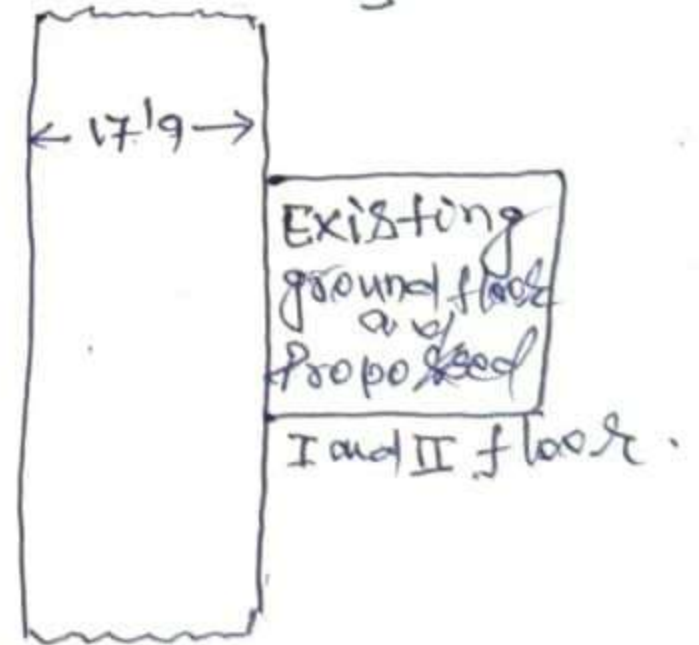 17'9
Existing
ground floor
and
Proposed
I and II floor.